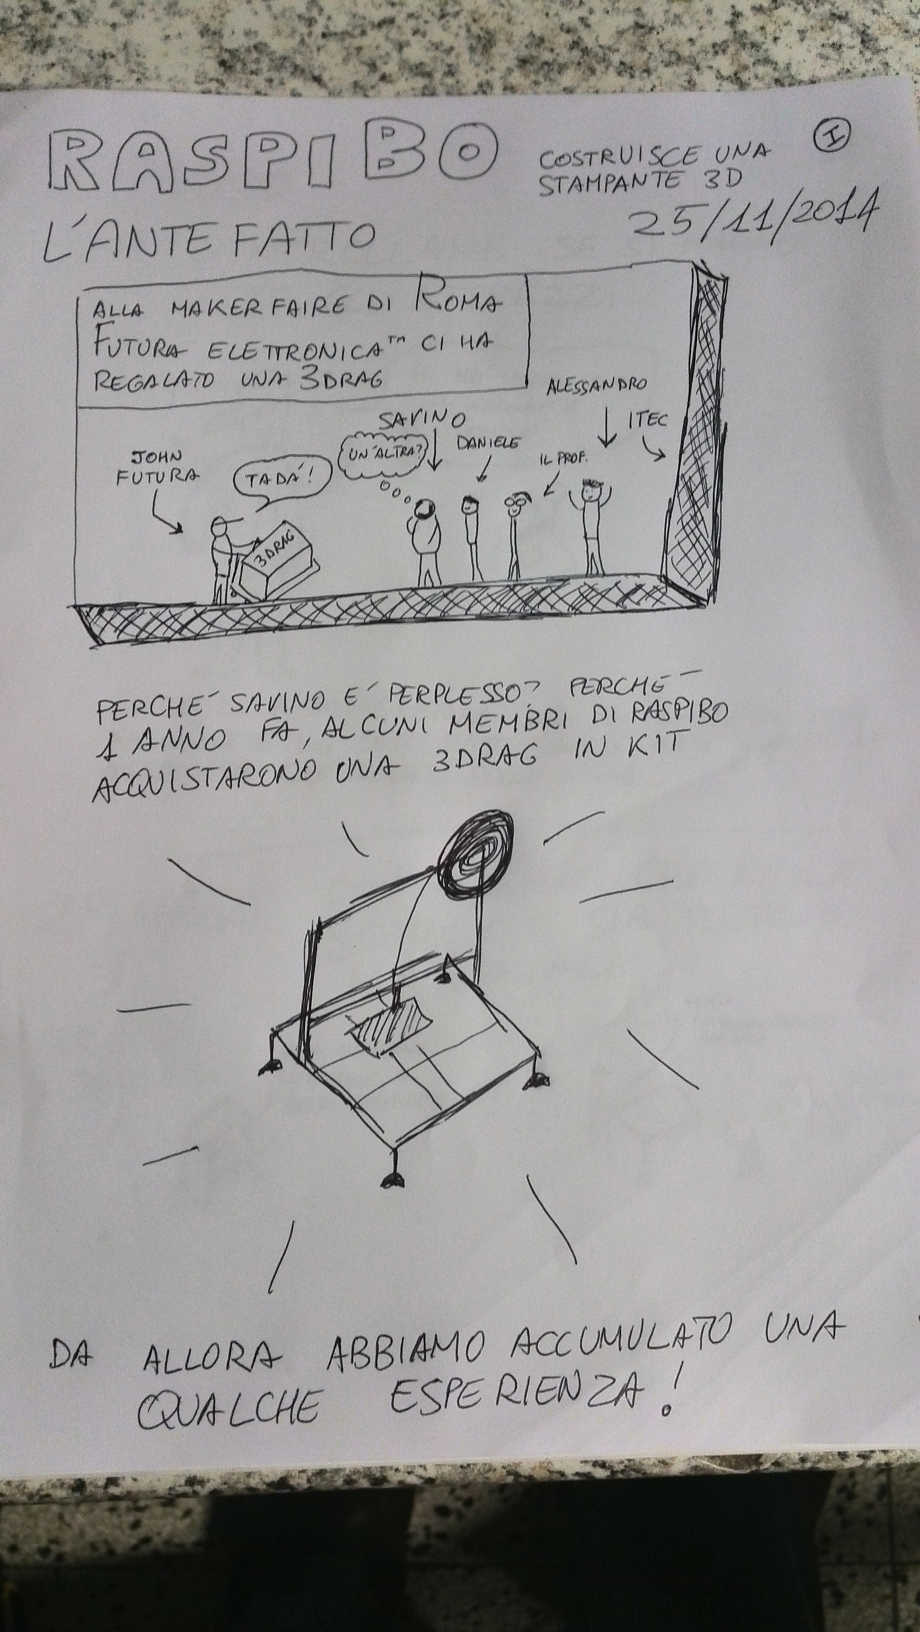 RASPIBO
COSTRUISCE UNA
STAMPANTE 3D
I
25/11/2014
L'ANTEFATTO
ALLA MAKERFAIRE DI ROMA
FUTURA ELETTRONICA™ CI HA
REGALATO UNA 3DRAG
JOHN
FUTURA
TADA'!
3DRAG
UN'ALTRA?
SAVINO
DANIELE
IL PROF.
ALESSANDRO
ITEC
PERCHE' SAVINO E' PERPLESSO? PERCHE'
1 ANNO FA, ALCUNI MEMBRI DI RASPIBO
ACQUISTARONO UNA 3DRAG IN KIT
DA ALLORA ABBIAMO ACCUMULATO UNA
QUALCHE ESPERIENZA!